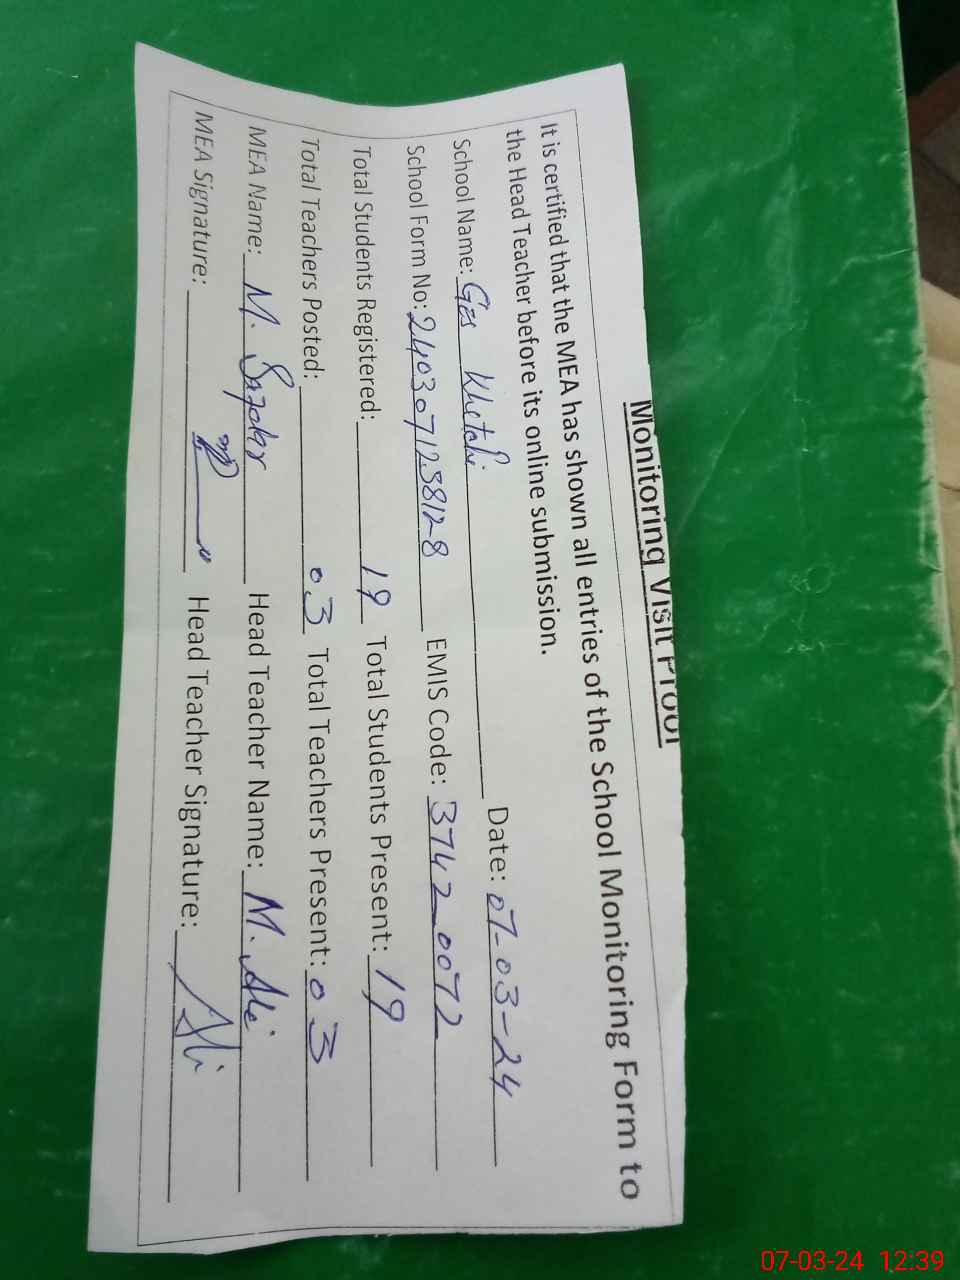 Monitoring Visit Proof
It is certified that the MEA has shown all entries of the School Monitoring Form to
the Head Teacher before its online submission.
School Name: GES Date: 07-03-24
School Form No: EMIS Code: 37420072
Total Students Registered: 19 Total Students Present: 19
Total Teachers Posted: 03 Total Teachers Present: 03
MEA Name: M. Head Teacher Name: M. Ali
MEA Signature: Head Teacher Signature: Ali
07-03-24 12:39